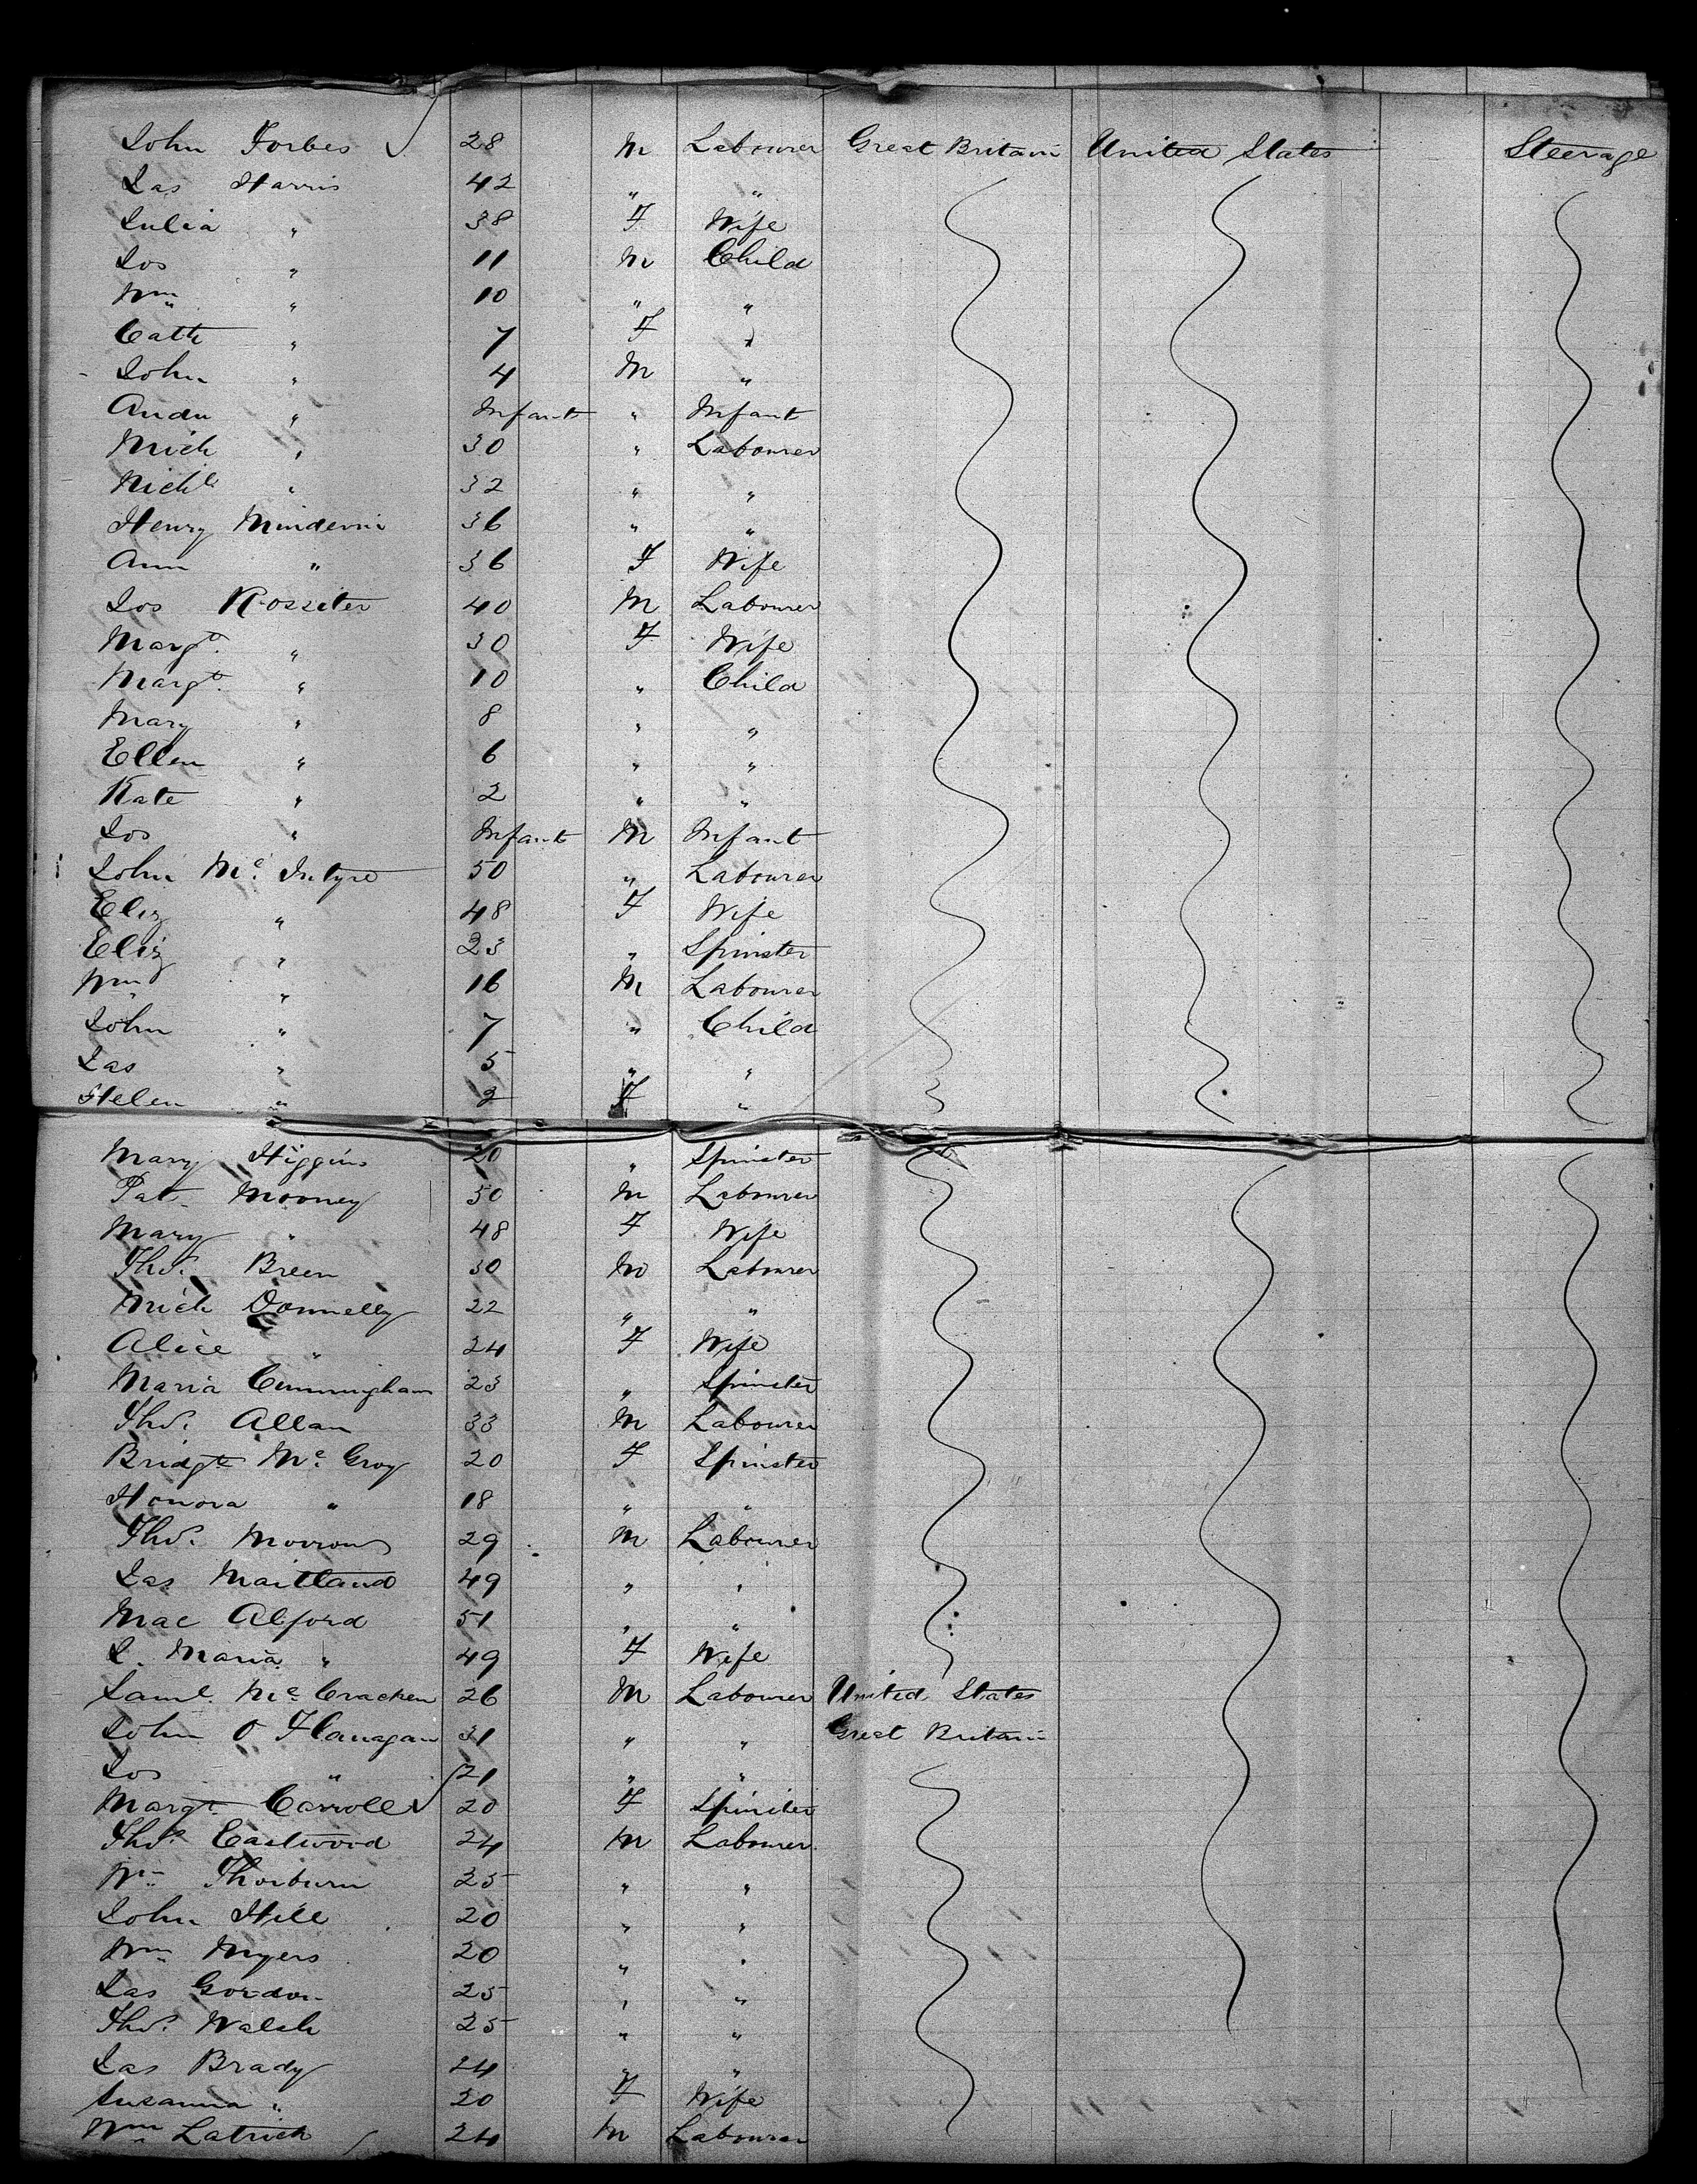 John Forbes 28 M Labourer Great Britain United States Steerage
Jas Harris 42 " "
Julia " 38 F Wife
Jos " 11 M Child
Wm " 10 " "
Cath " 7 F "
John " 4 M "
Andw " Infant " Infant
Mich " 30 " Labourer
Nichls " 32 " "
Henry 36 " "
Ann " 36 F Wife
Jos Rossiter 40 M Labourer
Margt. " 30 F Wife
Margt. " 10 " Child
Mary " 8 " "
Ellen " 6 " "
Kate " 2 " "
Jos " Infant M Infant
John Mc. Intyre 50 " Labourer
Eliz " 48 F Wife
Eliz " 23 " Spinster
Wm " 16 M Labourer
John " 7 " Child
Jas " 5 " "
Helen " 2 F "
Mary Higgins 20 " Spinster
Pat Mooney 50 M Labourer
Mary " 48 F Wife
Thos. Breen 30 M Labourer
Mich Donnelly 22 " "
Alice " 24 F Wife
Maria Cunningham 23 " Spinster
Thos. Allan 33 M Labourer
Bridgt Mc. Groy 20 F Spinster
Honora " 18 " "
Thos. Morrow 29 M Labourer
Jas Maitland 49 " "
Mac Alford 51 " "
L. Maria " 49 F Wife
Saml. Mc Cracken 26 M Labourer United States
John O Flanagan 31 " " Great Britain
Jos " 21 " "
Margt Carroll 20 F Spinster
Thos. Eastwood 24 M Labourer
Wm Thorburn 25 " "
John Hill 20 " "
Wm Myers 20 " "
Jas Gordon 25 " "
Thos. Walsh 25 " "
Jas Brady 24 " "
Susanna " 20 F Wife
Wm Latrich 24 M Labourer